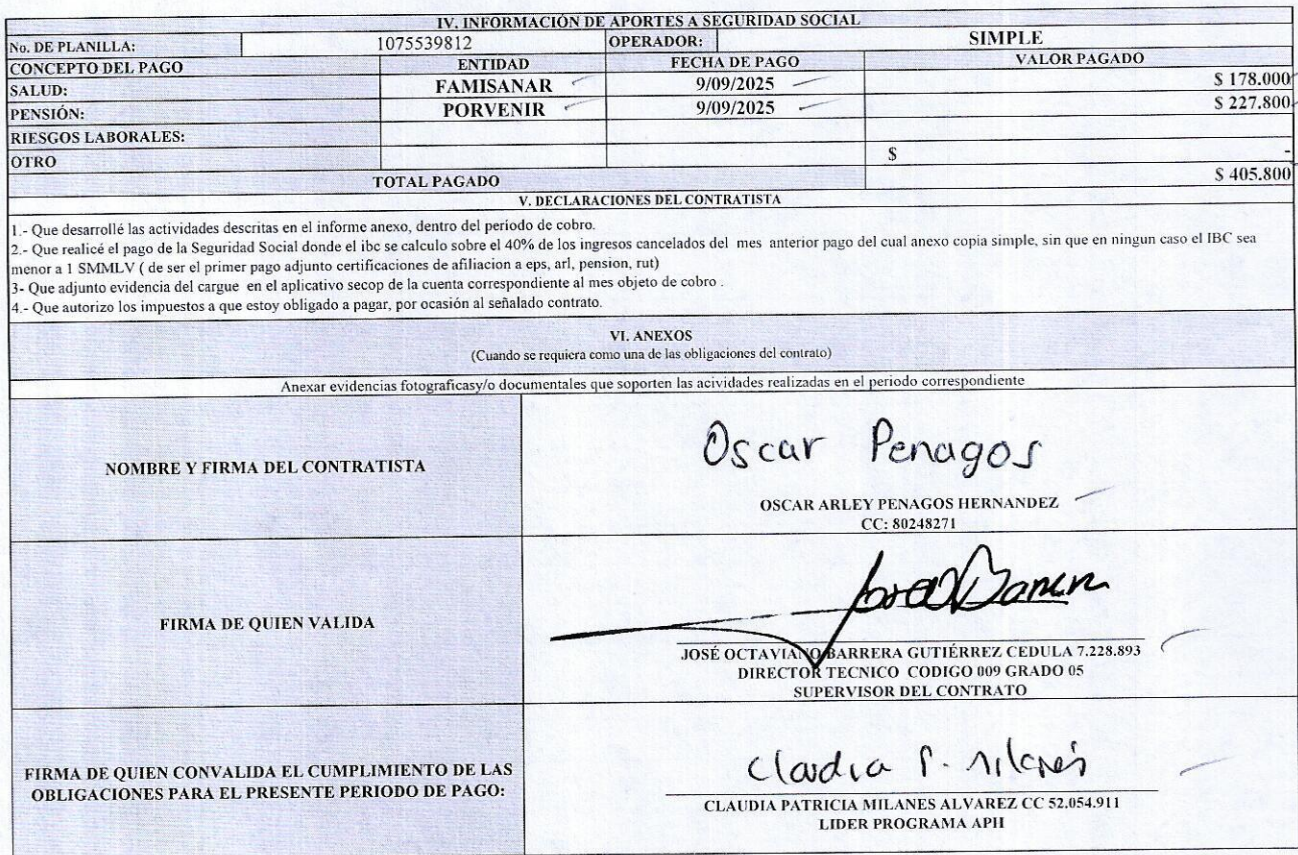 IV. INFORMACIÓN DE APORTES A SEGURIDAD SOCIAL
No. DE PLANILLA: 1075539812 OPERADOR: SIMPLE
CONCEPTO DEL PAGO ENTIDAD FECHA DE PAGO VALOR PAGADO
SALUD: FAMISANAR 9/09/2025 $ 178.000
PENSIÓN: PORVENIR 9/09/2025 $ 227.800
RIESGOS LABORALES:
OTRO $ -
TOTAL PAGADO $ 405.800
V. DECLARACIONES DEL CONTRATISTA
1.- Que desarrollé las actividades descritas en el informe anexo, dentro del periodo de cobro.
2.- Que realicé el pago de la Seguridad Social donde el ibc se calculo sobre el 40% de los ingresos cancelados del mes anterior pago del cual anexo copia simple, sin que en ningun caso el IBC sea
menor a 1 SMMLV ( de ser el primer pago adjunto certificaciones de afiliacion a eps, arl, pension, rut)
3- Que adjunto evidencia del cargue en el aplicativo secop de la cuenta correspondiente al mes objeto de cobro .
4.- Que autorizo los impuestos a que estoy obligado a pagar, por ocasión al señalado contrato.
VI. ANEXOS
(Cuando se requiera como una de las obligaciones del contrato)
Anexar evidencias fotograficasy/o documentales que soporten las acividades realizadas en el periodo correspondiente
Oscar Penagos
NOMBRE Y FIRMA DEL CONTRATISTA
OSCAR ARLEY PENAGOS HERNANDEZ
CC: 80248271
FIRMA DE QUIEN VALIDA
JOSÉ OCTAVIANO BARRERA GUTIÉRREZ CEDULA 7.228.893
DIRECTOR TECNICO CODIGO 009 GRADO 05
SUPERVISOR DEL CONTRATO
Claudia P. Milanés
FIRMA DE QUIEN CONVALIDA EL CUMPLIMIENTO DE LAS
OBLIGACIONES PARA EL PRESENTE PERIODO DE PAGO:
CLAUDIA PATRICIA MILANES ALVAREZ CC 52.054.911
LIDER PROGRAMA APH